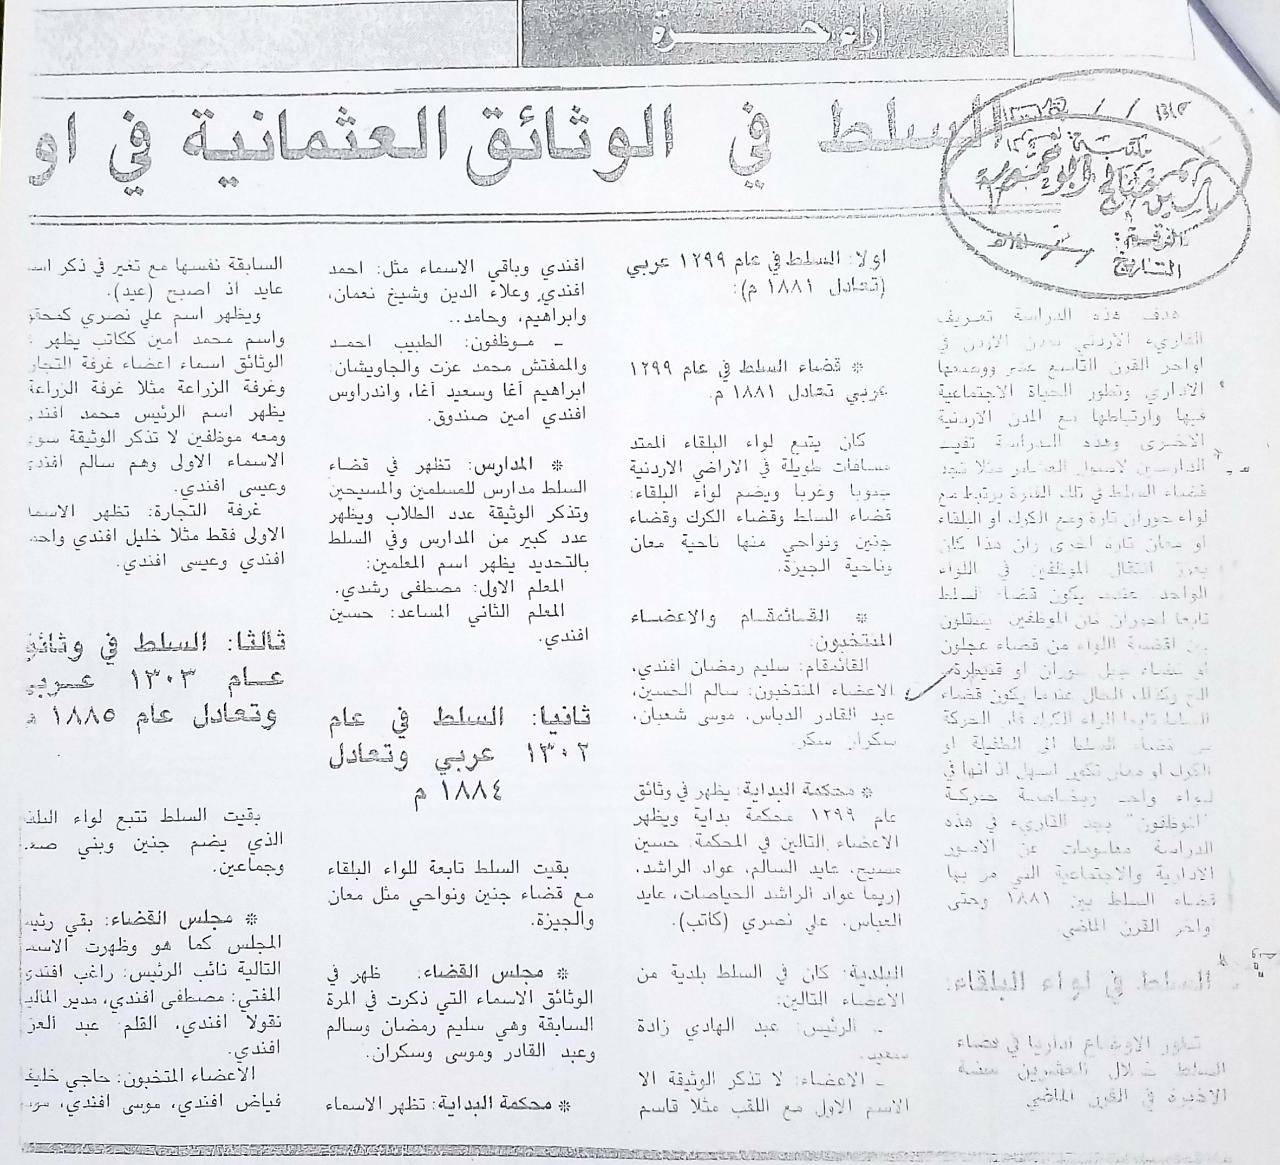 آراء حــــرة
السلط في الوثائق العثمانية في او
مكتبة
الرقم:
التاريخ
هدف هذه الدراسة تعريف
القاريء الاردني بمدن الاردن في
اواخر القرن التاسع عشر ووضعها
الاداري وتطور الحياة الاجتماعية
فيها وارتباطها مع المدن الاردنية
الاخرى وهذه الدراسة تفيد
الدارسين لاصول العشائر مثلا نجد
قضاء السلط في تلك الفترة يرتبط مع
لواء حوران تارة ومع الكرك او البلقاء
او معان تارة اخرى وان هذا كان
يعزز انتقال الموظفين في اللواء
الواحد. عندما يكون قضاء السلط
تابعا لحوران فان الموظفين ينتقلون
بين اقضية اللواء من قضاء عجلون
او قضاء جبل حوران او قنيطرة..
الخ وكذلك الحال عندما يكون قضاء
السلط تابعا للواء الكرك فان الحركة
من قضاء السلط الى الطفيلة او
الكرك او معان تكون اسهل اذ انها في
لواء واحد وبخاصة حركة
"الموظفون" يجد القاريء في هذه
الدراسة معلومات عن الامور
الادارية والاجتماعية التي مر بها
قضاء السلط بين ١٨٨١ وحتى
واخر القرن الماضي.
السلط في لواء البلقاء:
تطور الاوضاع اداريا في قضاء
السلط خلال العشرين سنة
الاخيرة في القرن الماضي
اولا: السلط في عام ١٢٩٩ عربي
(تعادل ١٨٨١ م):
* قضاء السلط في عام ١٢٩٩
عربي تعادل ١٨٨١ م.
كان يتبع لواء البلقاء الممتد
مسافات طويلة في الاراضي الاردنية
جنوبا وغربا ويضم لواء البلقاء:
قضاء السلط وقضاء الكرك وقضاء
جنين ونواحي منها ناحية معان
وناحية الجيزة.
* القــائمقــام والاعضــاء
المنتخبون:
القائمقام: سليم رمضان افندي،
الاعضاء المنتخبون: سالم الحسين،
عبد القادر الدباس، موسى شعبان،
سكران سكر.
* محكمة البداية: يظهر في وثائق
عام ١٢٩٩ محكمة بداية ويظهر
الاعضاء التالين في المحكمة: حسين
مسيح، عايد السالم، عواد الراشد،
(ربما عواد الراشد الحياصات، عايد
العباس، علي نصري (كاتب).
البلدية: كان في السلط بلدية من
الاعضاء التالين:
ـ الرئيس: عبد الهادي زادة
سعيد.
ـ الاعضاء: لا تذكر الوثيقة الا
الاسم الاول مع اللقب مثلا قاسم
افندي وباقي الاسماء مثل: احمد
افندي وعلاء الدين وشيخ نعمان،
وابراهيم، وحامد..
ـ مـوظفون: الطبيب احمـد
والمفتش محمد عزت والجاويشان:
ابراهيم آغا وسعيد آغا، واندراوس
افندي امين صندوق.
* المدارس: تظهر في قضاء
السلط مدارس للمسلمين والمسيحين
وتذكر الوثيقة عدد الطلاب ويظهر
عدد كبير من المدارس وفي السلط
بالتحديد يظهر اسم المعلمين:
المعلم الاول: مصطفى رشدي.
المعلم الثاني المساعد: حسين
افندي.
ثانيا: السلط في عام
١٣٠٢ عربي وتعادل
١٨٨٤ م
بقيت السلط تابعة للواء البلقاء
مع قضاء جنين ونواحي مثل معان
والجيزة.
* مجلس القضاء: ظهر في
الوثائق الاسماء التي ذكرت في المرة
السابقة وهي سليم رمضان وسالم
وعبد القادر وموسى وسكران.
* محكمة البداية: تظهر الاسماء
السابقة نفسها مع تغير في ذكر اسم
عايد اذ اصبح (عيد).
ويظهر اسم علي نصري كمحقق
واسم محمد امين ككاتب يظهر
الوثائق اسماء اعضاء غرفة التجار
وغرفة الزراعة مثلا غرفة الزراعة
يظهر اسم الرئيس محمد افندي
ومعه موظفين لا تذكر الوثيقة سوى
الاسماء الاولى وهم سالم افندي
وعيسى افندي.
غرفة التجارة: تظهر الاسما
الاولى فقط مثلا خليل افندي واحمد
افندي وعيسى افندي.
ثالثا: السلط في وثائق
عــام ١٣٠٣ عــربي
وتعادل عام ١٨٨٥ م
بقيت السلط تتبع لواء البلق
الذي يضم جنين وبني صعب
وجماعين.
* مجلس القضاء: بقي رئيس
المجلس كما هو وظهرت الاسم
التالية نائب الرئيس: راغب افندي
المفتي: مصطفى افندي، مدير المالي
نقولا افندي، القلم: عبد العز
افندي.
الاعضاء المنتخبون: حاجي خليف
فياض افندي، موسى افندي، موس